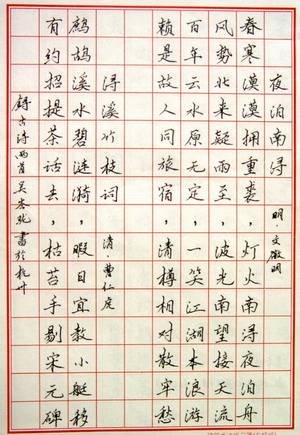 夜泊南浔 明·文徵明
春寒漠漠拥重裘，灯火南浔夜泊舟
风势北来疑雨至，波光南望接天流
百年云水原无定，一笑江湖本浪游
赖是故人同旅宿，清樽相对散牢愁
浔溪竹枝词 清·曹仁虎
鹧鸪溪水碧涟漪，暇日宜教小艇移
有约招提茶话去，枯苔手剔宋元碑
古诗两首吴 書於杭州